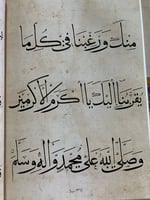 منك ورغبنا في كل ما
يقربنا إليك يا أكرم الأكرمين
وصلى الله على محمد وآله وسلم